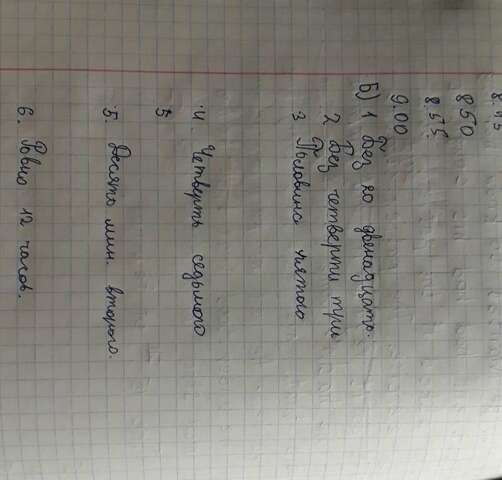 8.45
8.50
8.55.
9.00
Б) 1 Без 20 двенадцать.
2 Без четверти три
3 Половина пятого
4. Четверть седьмого
5
5. Десять мин второго.
6. Ровно 12 часов.